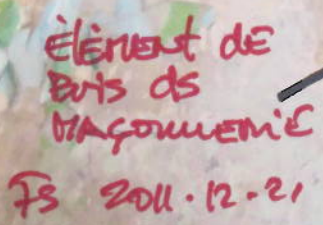 ÉLÉMENT dE
BOIS dS
MAÇONNERIE
FS 2011.12.21